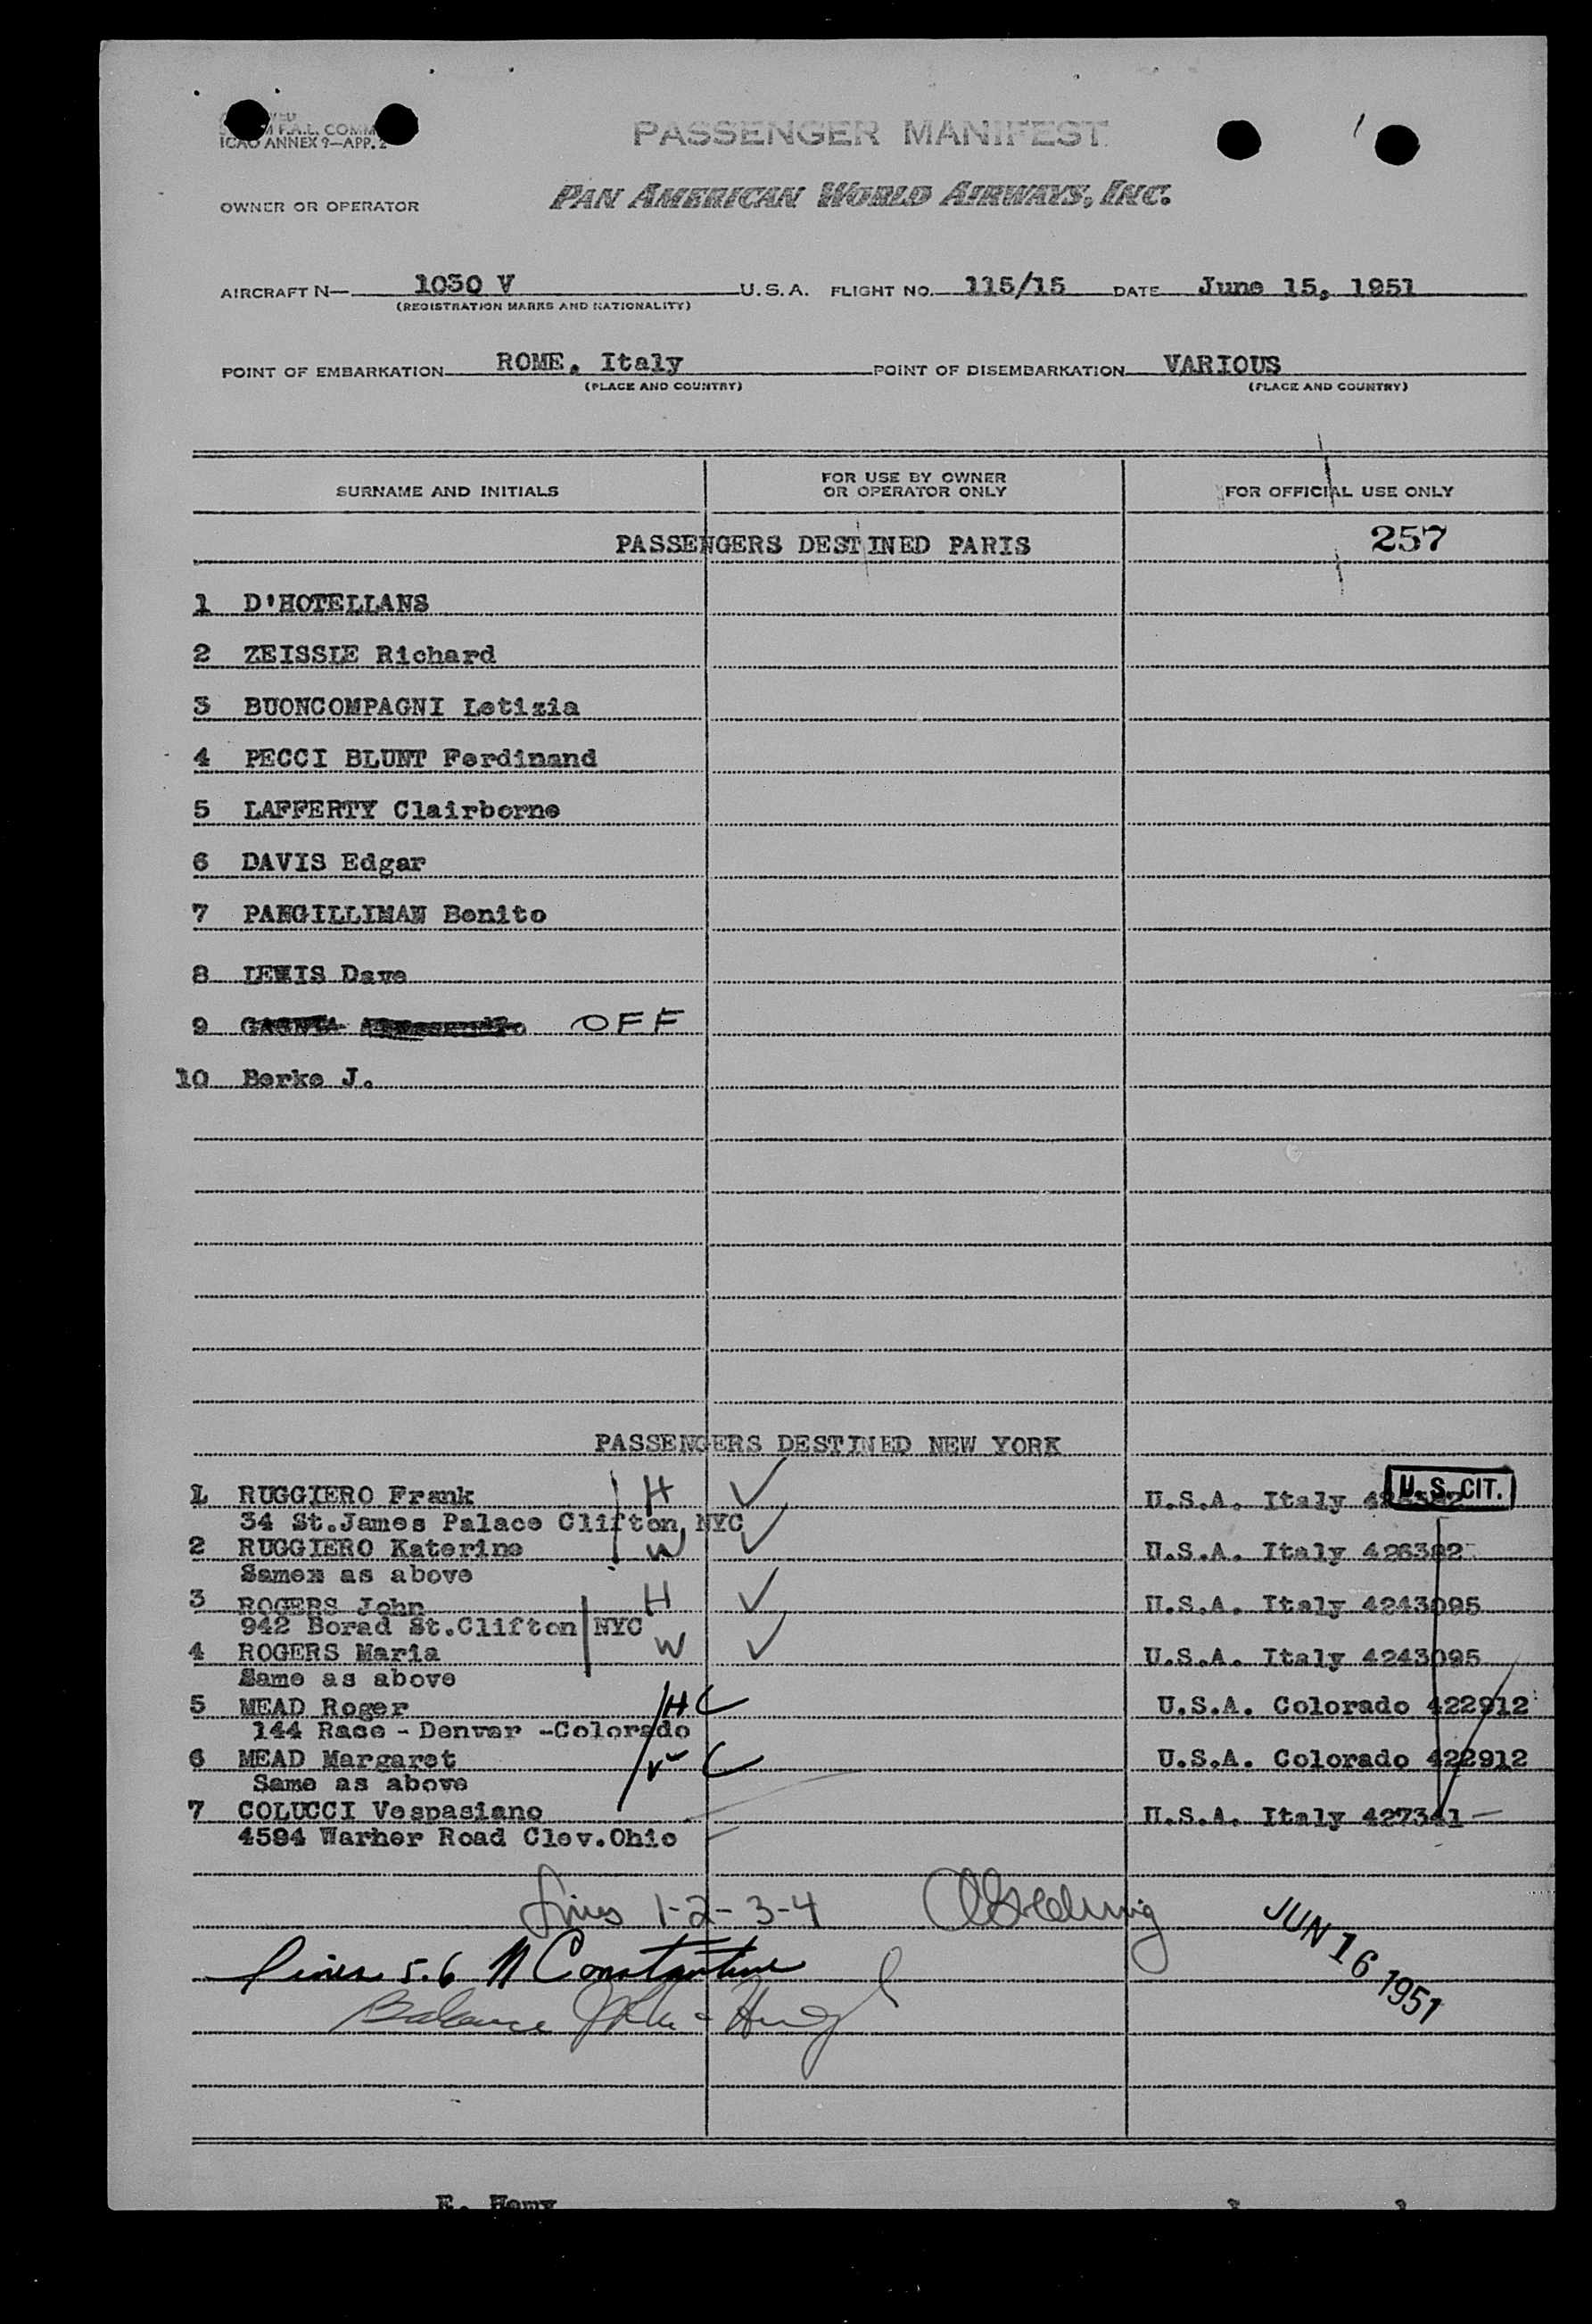 F.A.L. COMM
ICAO ANNEX 9—APP. 2
PASSENGER MANIFEST
OWNER OR OPERATOR PAN AMERICAN WORLD AIRWAYS, INC.
AIRCRAFT N— 1030 V U.S.A. FLIGHT NO. 115/15 DATE June 15, 1951
(REGISTRATION MARKS AND NATIONALITY)
POINT OF EMBARKATION ROME, Italy POINT OF DISEMBARKATION VARIOUS
(PLACE AND COUNTRY) (PLACE AND COUNTRY)
SURNAME AND INITIALS FOR USE BY OWNER OR OPERATOR ONLY FOR OFFICIAL USE ONLY
PASSENGERS DESTINED PARIS 257
1 D'HOTELLANS
2 ZEISSIE Richard
3 BUONCOMPAGNI Letizia
4 PECCI BLUNT Ferdinand
5 LAFFERTY Clairborne
6 DAVIS Edgar
7 PANGILLIMAN Benito
8 LEWIS Dave
9 OFF
10 Berke J.
PASSENGERS DESTINED NEW YORK
1 RUGGIERO Frank H ✓ U.S.A. Italy U.S. CIT.
34 St.James Palace Clifton NYC
2 RUGGIERO Katerine W ✓ U.S.A. Italy 426382
Samem as above
3 ROGERS John H ✓ U.S.A. Italy 4243095
942 Borad St.Clifton NYC
4 ROGERS Maria W ✓ U.S.A. Italy 4243095
Same as above
5 MEAD Roger H C U.S.A. Colorado 422912
144 Race - Denver -Colorado
6 MEAD Margaret C U.S.A. Colorado 422912
Same as above
7 COLUCCI Vespasiano U.S.A. Italy 427341
4594 Warher Road Clev.Ohio
Lines 1-2-3-4
JUN 16 1951
Lines 5.6 N Constantine
Balance